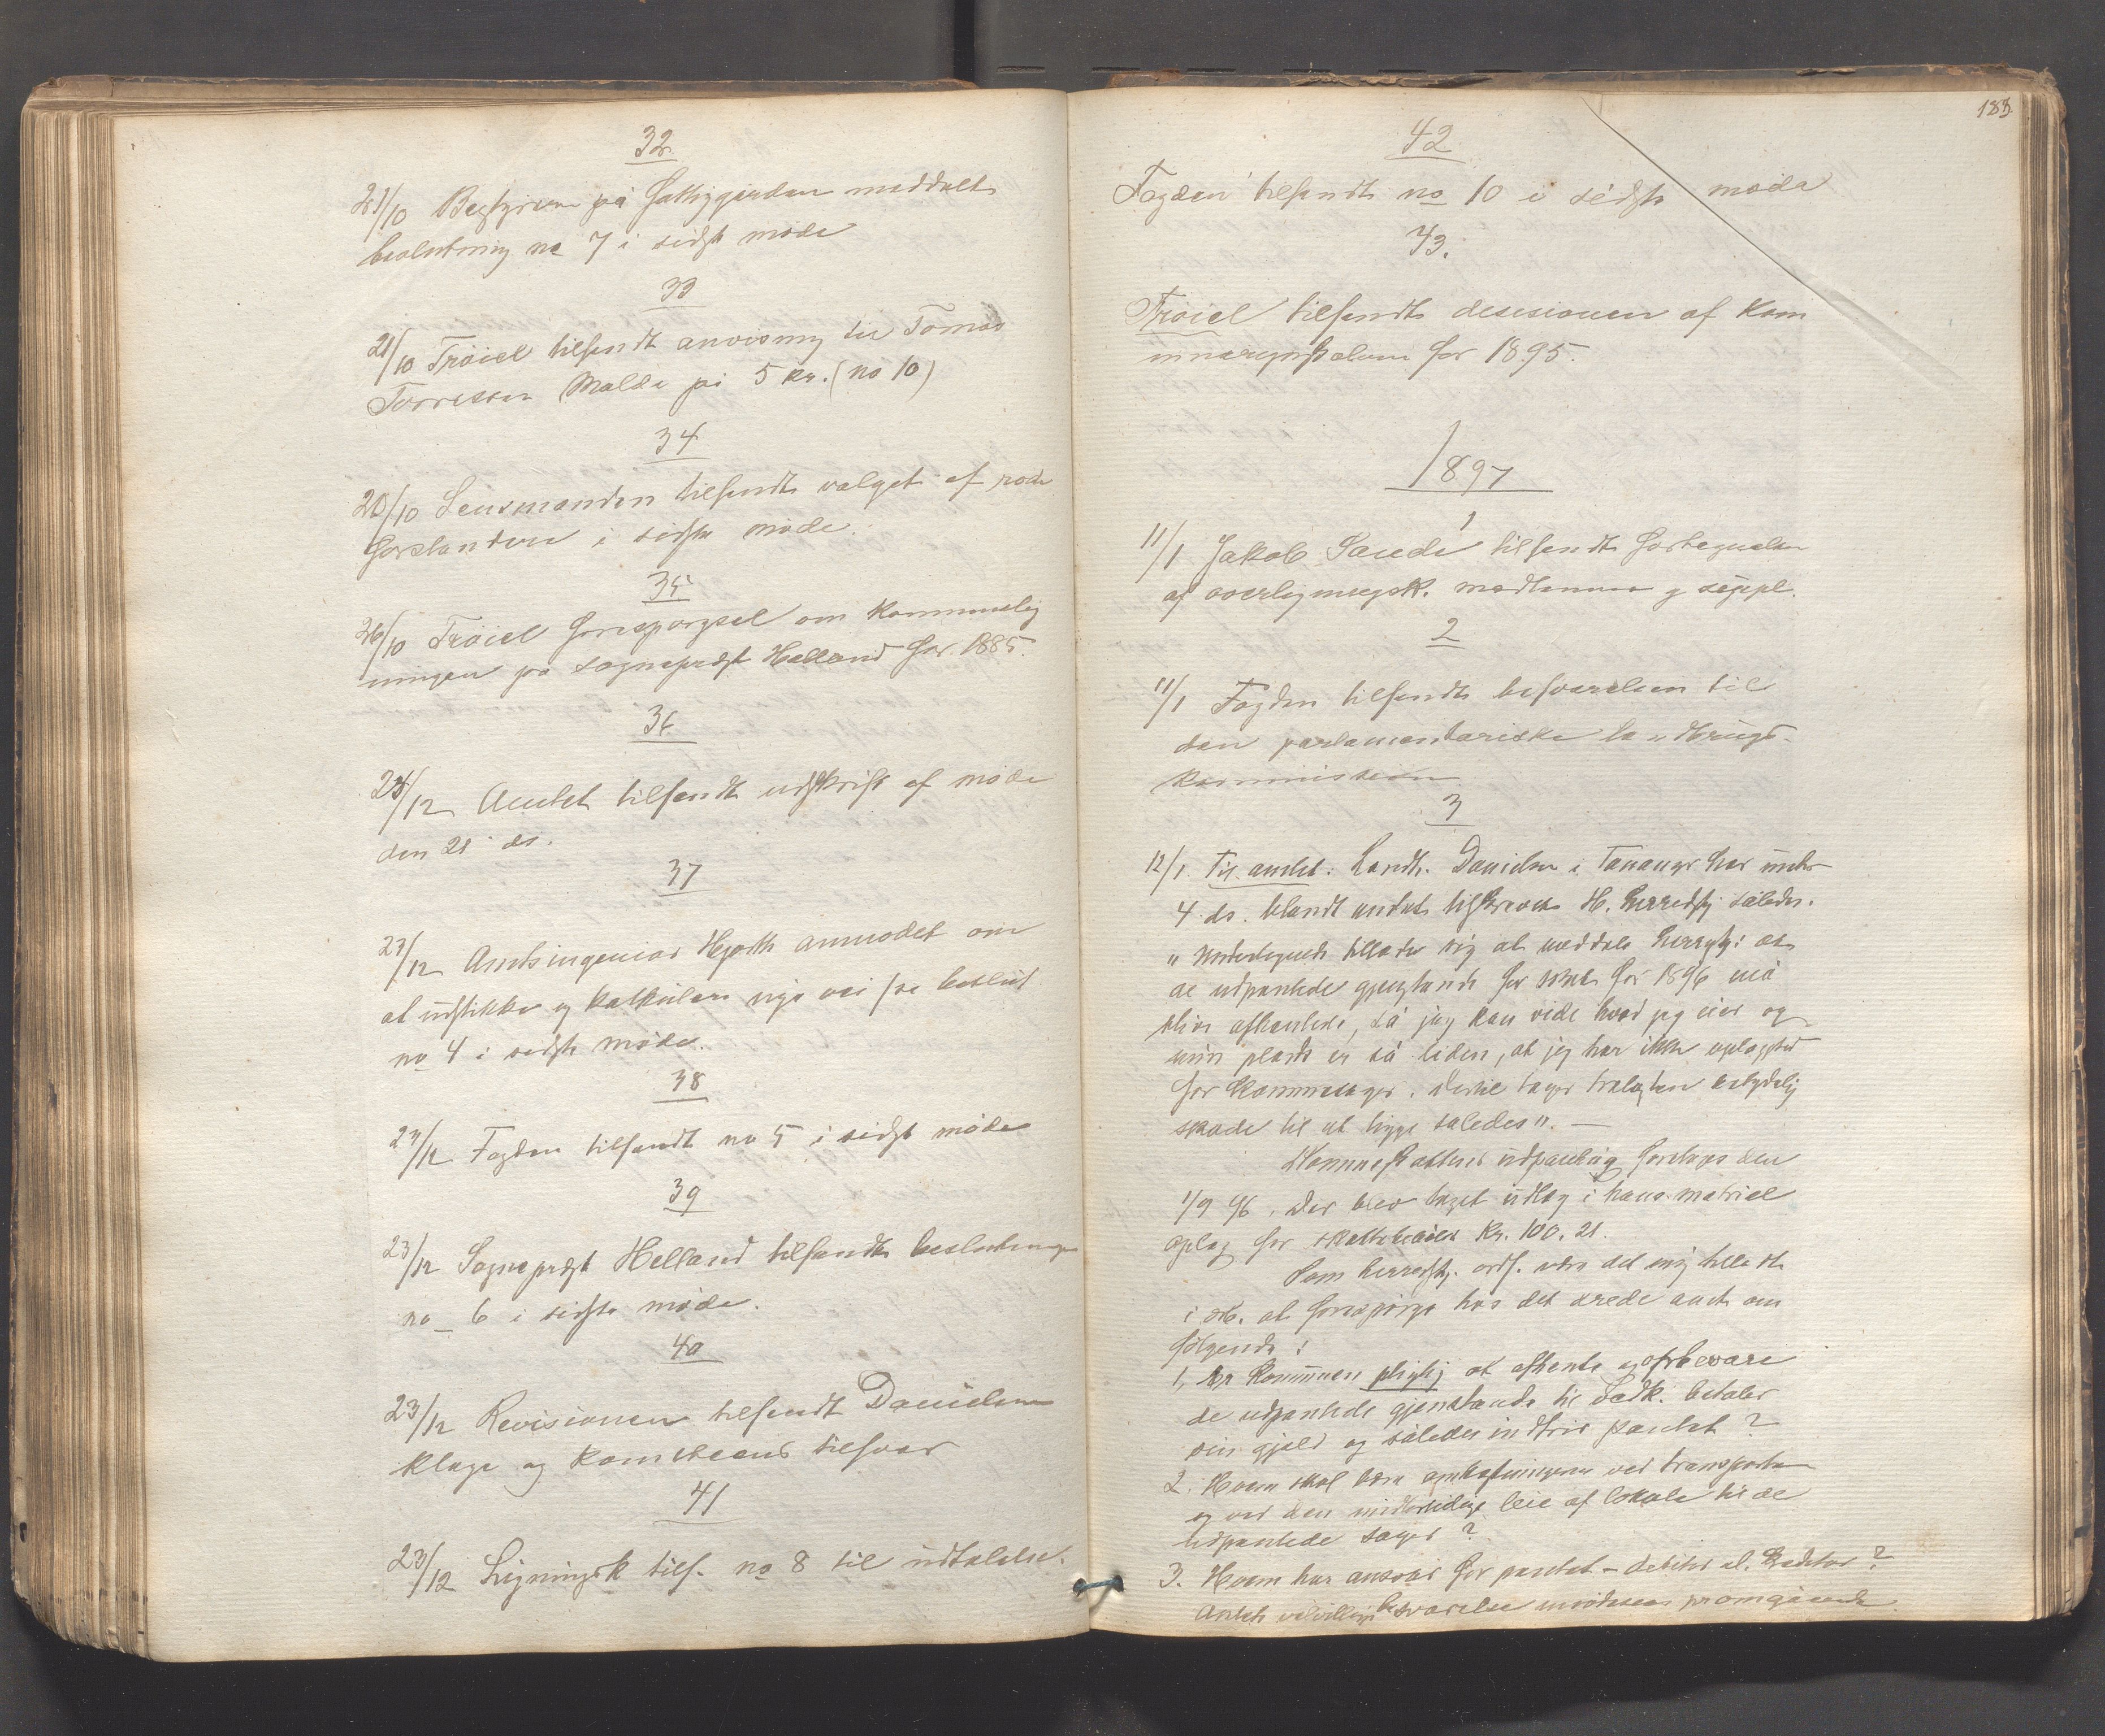 32
21/10 Bestyreren på Fattiggården meddelt
beslutning no 7 i sidste møde
33
21/10 Trøiel tilsendt anvisning til Tomas
Torresen Malde på 5 kr. (no 10)
34
20/10 Lensmanden tilsendt valget af rode
forstandere i sidste møde.
35
26/10 Trøiel forespørgsel om kommunelig
ningen på sogneprest Helland for 1885.
36
23/12 Amtet tilsendt udskrift af møde
den 21 ds.
37
23/12 Amtsingeniør Hjorth anmodet om
at udstikke og kalkulere nye vei se beslut
no 4 i sidste møde.
38
23/12 Fogden tilsendt no 5 i sidste møde
39
23/12 Sogneprest Helland tilsendt beslutningen
no 6 i sidste møde.
40
23/12 Revisionen tilsendt Danielsens
klage og tilsvar
41
23/12 Ligningsk tils. no 8 til udtalelse.
183
42
Fogden tilsendt no 10 i sidste møde
43.
Trøiel tilsendt desisionen af kom
for 1895.
1897
1
11/1 Jakob Sande tilsendt fortegnelse
af overligningsk. medlemmer g suppl.
2
11/1 Fogden tilsendt besvarelsen til
den parlamentariske landbrugs-
kommission
3
12/1. Til amtet. Landh. Danielsen i Tananger har under
4 ds. blandt andet tilskrevet H. herredsst. således.
" Undertegnede tillader sig at meddele herredsst: at
de udpantede gjenstande for skat for 1896 må
blive afhentede, så jeg kan vide hvad jeg eier og
min plads er så liden, at jeg har ikke oplagsted
for kommunen. Dertil tager trelasten betydelig
skade til at ligge således". —
Kommuneskattens udpantning foretoges den
1/9 96. Der blev taget udlæg i hans matriel
oplag for skattebeløbet kr. 100.21.
Som herredsst. ordf. være det mig tilladt
i at forespørge hos det ærede amt om
følgende:
1, Er kommunen pligtig at afhente og opbevare
de udpantede gjenstande til Vedk. betaler
sin gjæld og således indfrir pantet?
2. Hvem skal bære omkostningerne ved transporten
og ved den midlertidige leie af lokale til de
udpantede sager?
3. Hvem har ansvar for pantet – debitor el. kreditor?
Amtets velvillige besvarelse imødesees promgående.